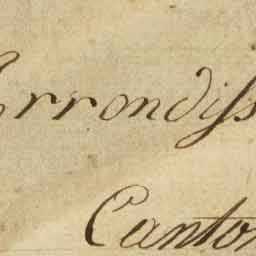 Arrondiss
Canton